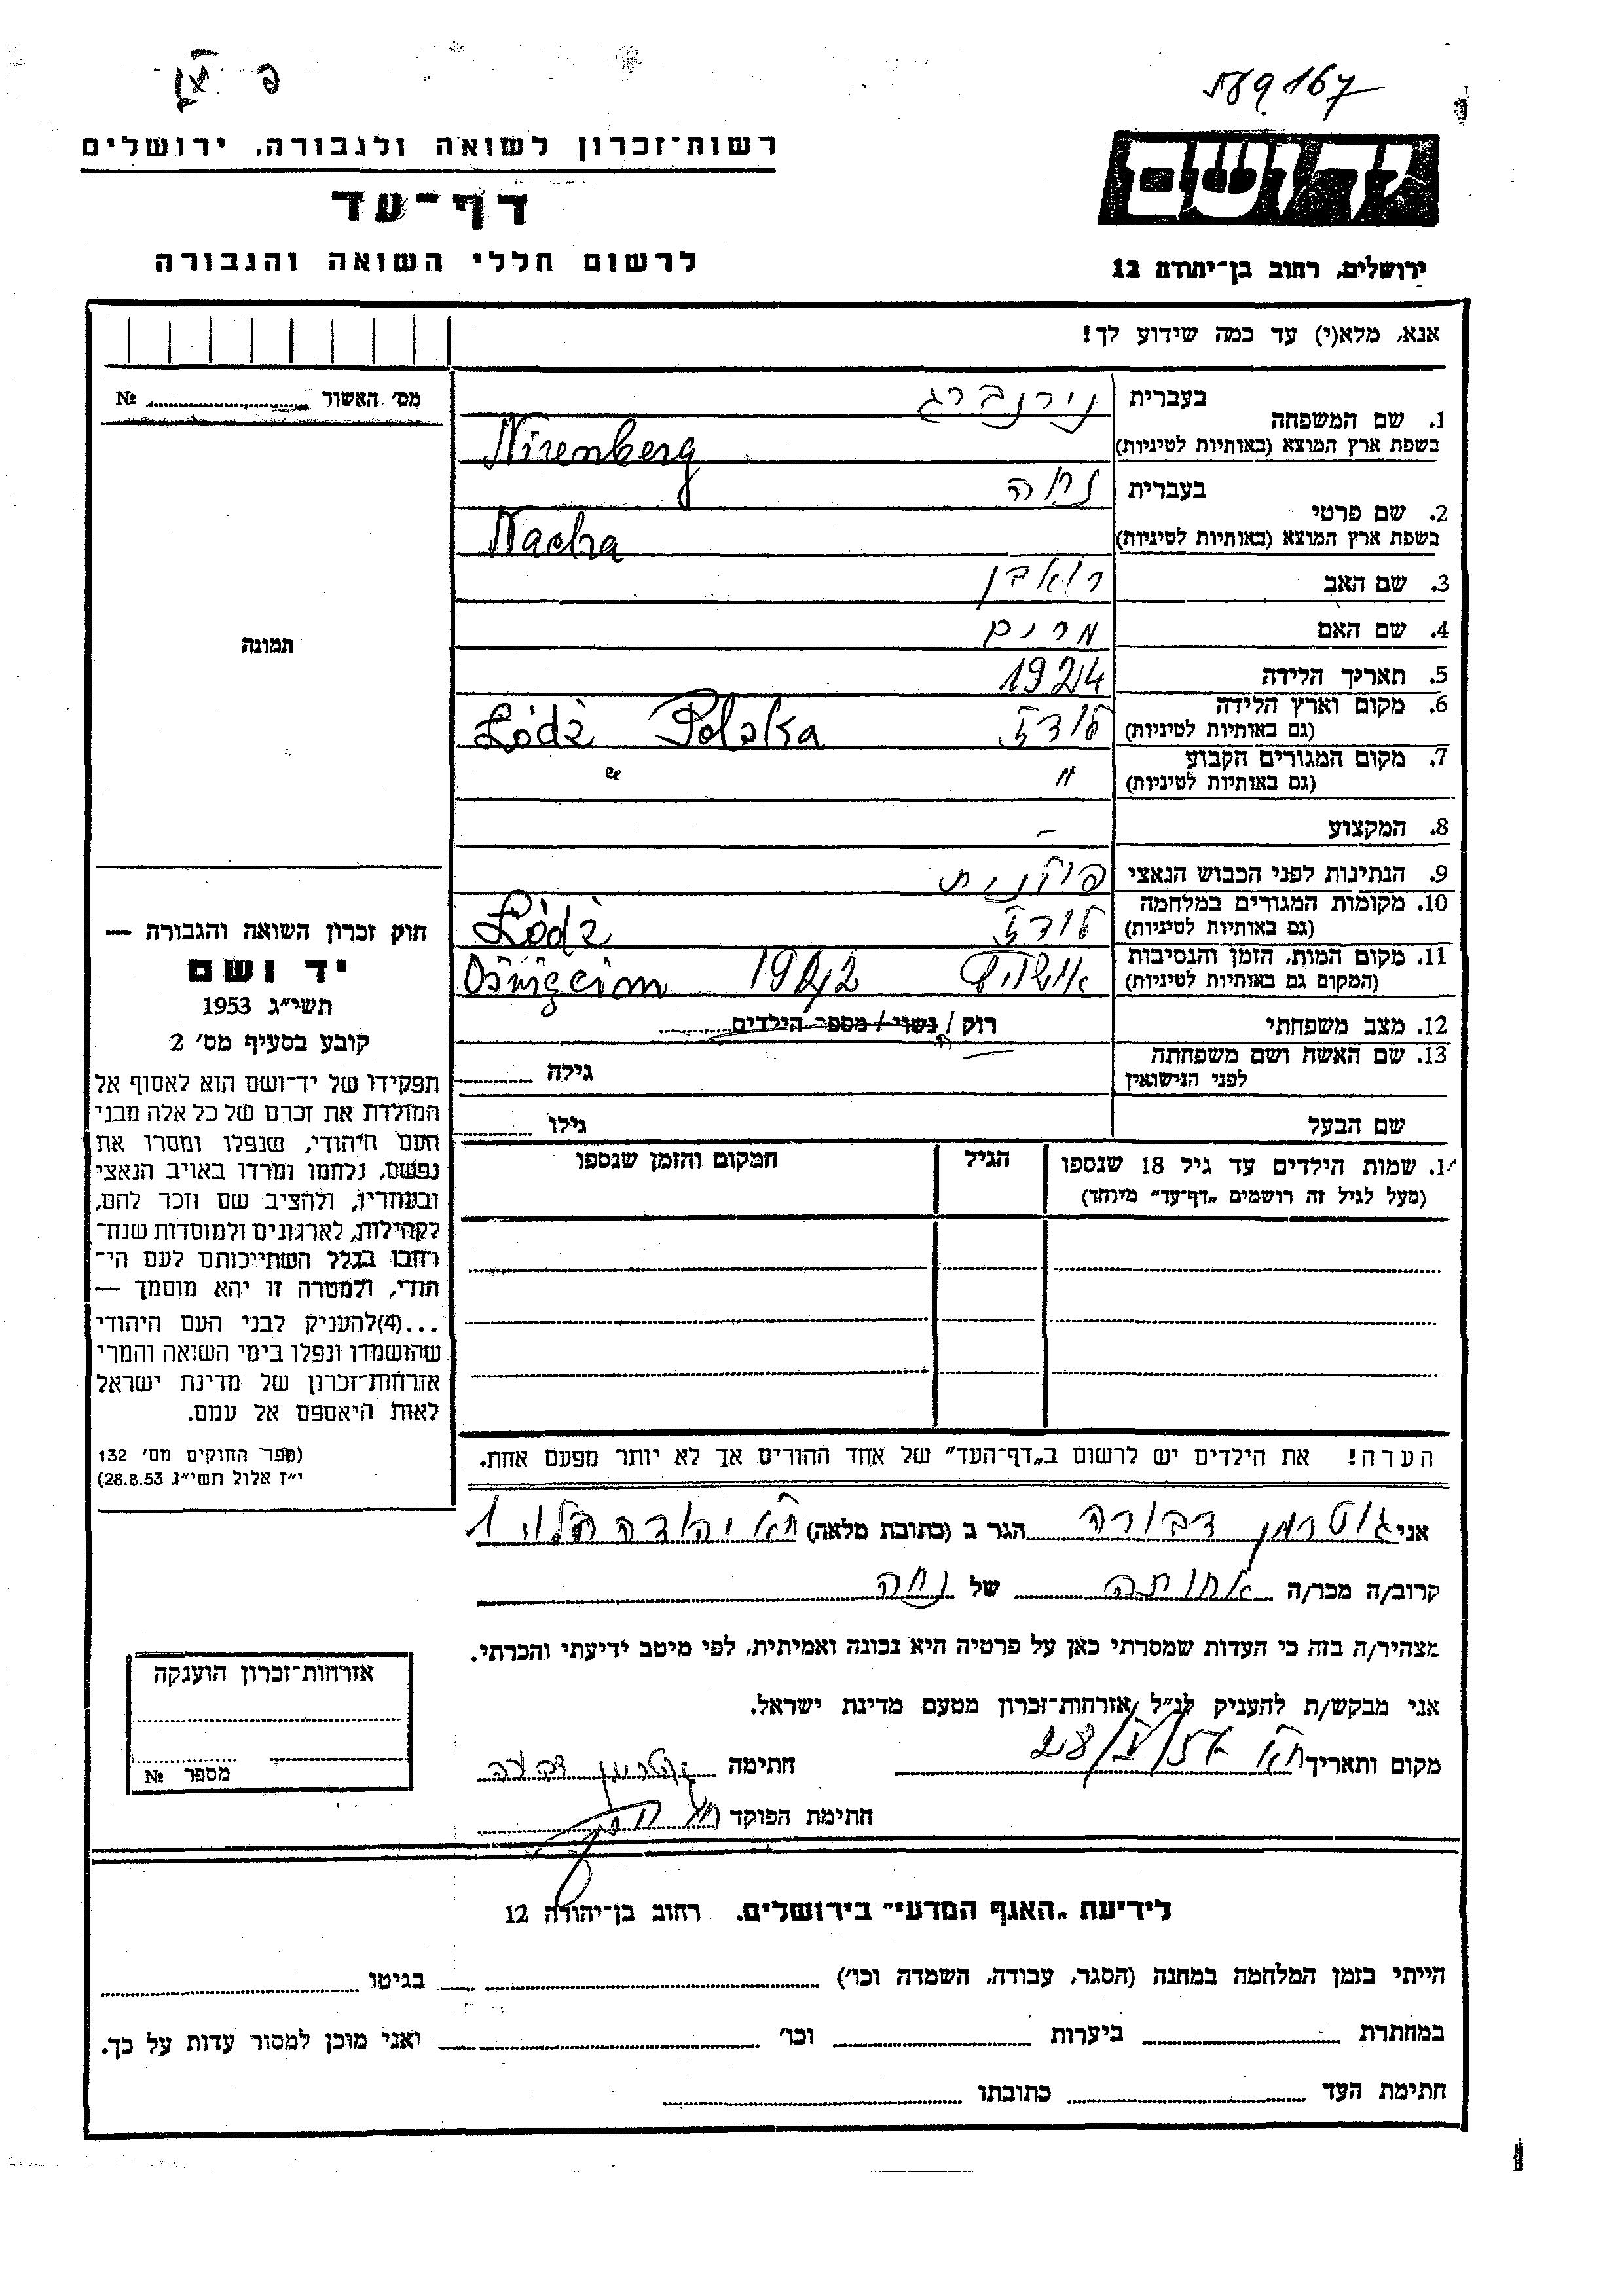 פ
167
רשות־זכרון לשואה ולגבורה, ירושלים
דף־עד
לרשום חללי השואה והגבורה
יד ושם
ירושלים, רחוב בן־יהודה 12
אנא, מלא(י) עד כמה שידוע לך!
מס׳ האשור № 
תמונה
1. שם המשפחה בעברית נירנברג
בשפת ארץ המוצא (באותיות לטיניות) Nirenberg
2. שם פרטי בעברית נחה
בשפת ארץ המוצא (באותיות לטיניות) Nacha
3. שם האב ראובן
4. שם האם מרים
5. תאריך הלידה 1924
6. מקום וארץ הלידה (גם באותיות לטיניות) לודז Łódż Polska
7. מקום המגורים הקבוע (גם באותיות לטיניות) " "
8. המקצוע –
9. הנתינות לפני הכבוש הנאצי פולנית
10. מקומות המגורים במלחמה (גם באותיות לטיניות) לודז Łódż
11. מקום המות, הזמן והנסיבות (המקום גם באותיות לטיניות) 1942
12. מצב משפחתי רוק / נשוי / מספר הילדים
13. שם האשה ושם משפחתה לפני הנישואין גילה
שם הבעל גילו
1. שמות הילדים עד גיל 18 שנספו הגיל המקום והזמן שנספו
(מעל לגיל זה רושמים „דף־עד״ מיוחד)
הערה! את הילדים יש לרשום ב„דף־העד״ של אחד ההורים אך לא יותר מפעם אחת.
חוק זכרון השואה והגבורה —
יד ושם
תשי״ג 1953
קובע בסעיף מס׳ 2
תפקידו של יד־ושם הוא לאסוף אל
המולדת את זכרם של כל אלה מבני
העם היהודי, שנפלו ומסרו את
נפשם, נלחמו ומרדו באויב הנאצי
ובעוזריו, ולהציב שם וזכר להם,
לקהילות, לארגונים ולמוסדות שנח־
רחבו בגלל השתייכותם לעם הי־
הודי, ולמטרה זו יהא מוסמך —
...(4)להעניק לבני העם היהודי
שהושמדו ונפלו בימי השואה והמרי
אזרחות־זכרון של מדינת ישראל
לאות היאספם אל עמם.
(ספר החוקים מס׳ 132
י״ז אלול תשי״ג 28.8.53)
אני גוטרמן דבורה הגר ב (כתובת מלאה) ת״א יהודה הלוי 1
קרוב/ה מכר/ה אחותה של נחה
מצהיר/ה בזה כי העדות שמסרתי כאן על פרטיה היא נכונה ואמיתית, לפי מיטב ידיעתי והכרתי.
אני מבקש/ת להעניק לנ״ל אזרחות־זכרון מטעם מדינת ישראל.
מקום ותאריך ת״א חתימה גוטרמן דבורה
חתימת הפוקד
אזרחות־זכרון הוענקה
מספר №
לידיעת „האגף המדעי״ בירושלים. רחוב בן־יהודה 12
הייתי בזמן המלחמה במחנה (הסגר, עבודה, השמדה וכו׳) בגיטו
במחתרת ביערות וכו׳ ואני מוכן למסור עדות על כך.
חתימת העד כתובתו